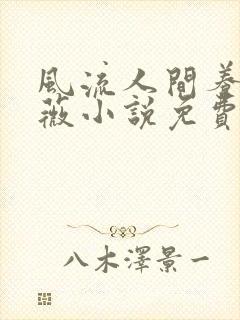 風流人間養
薇小説免費
八木澤景一